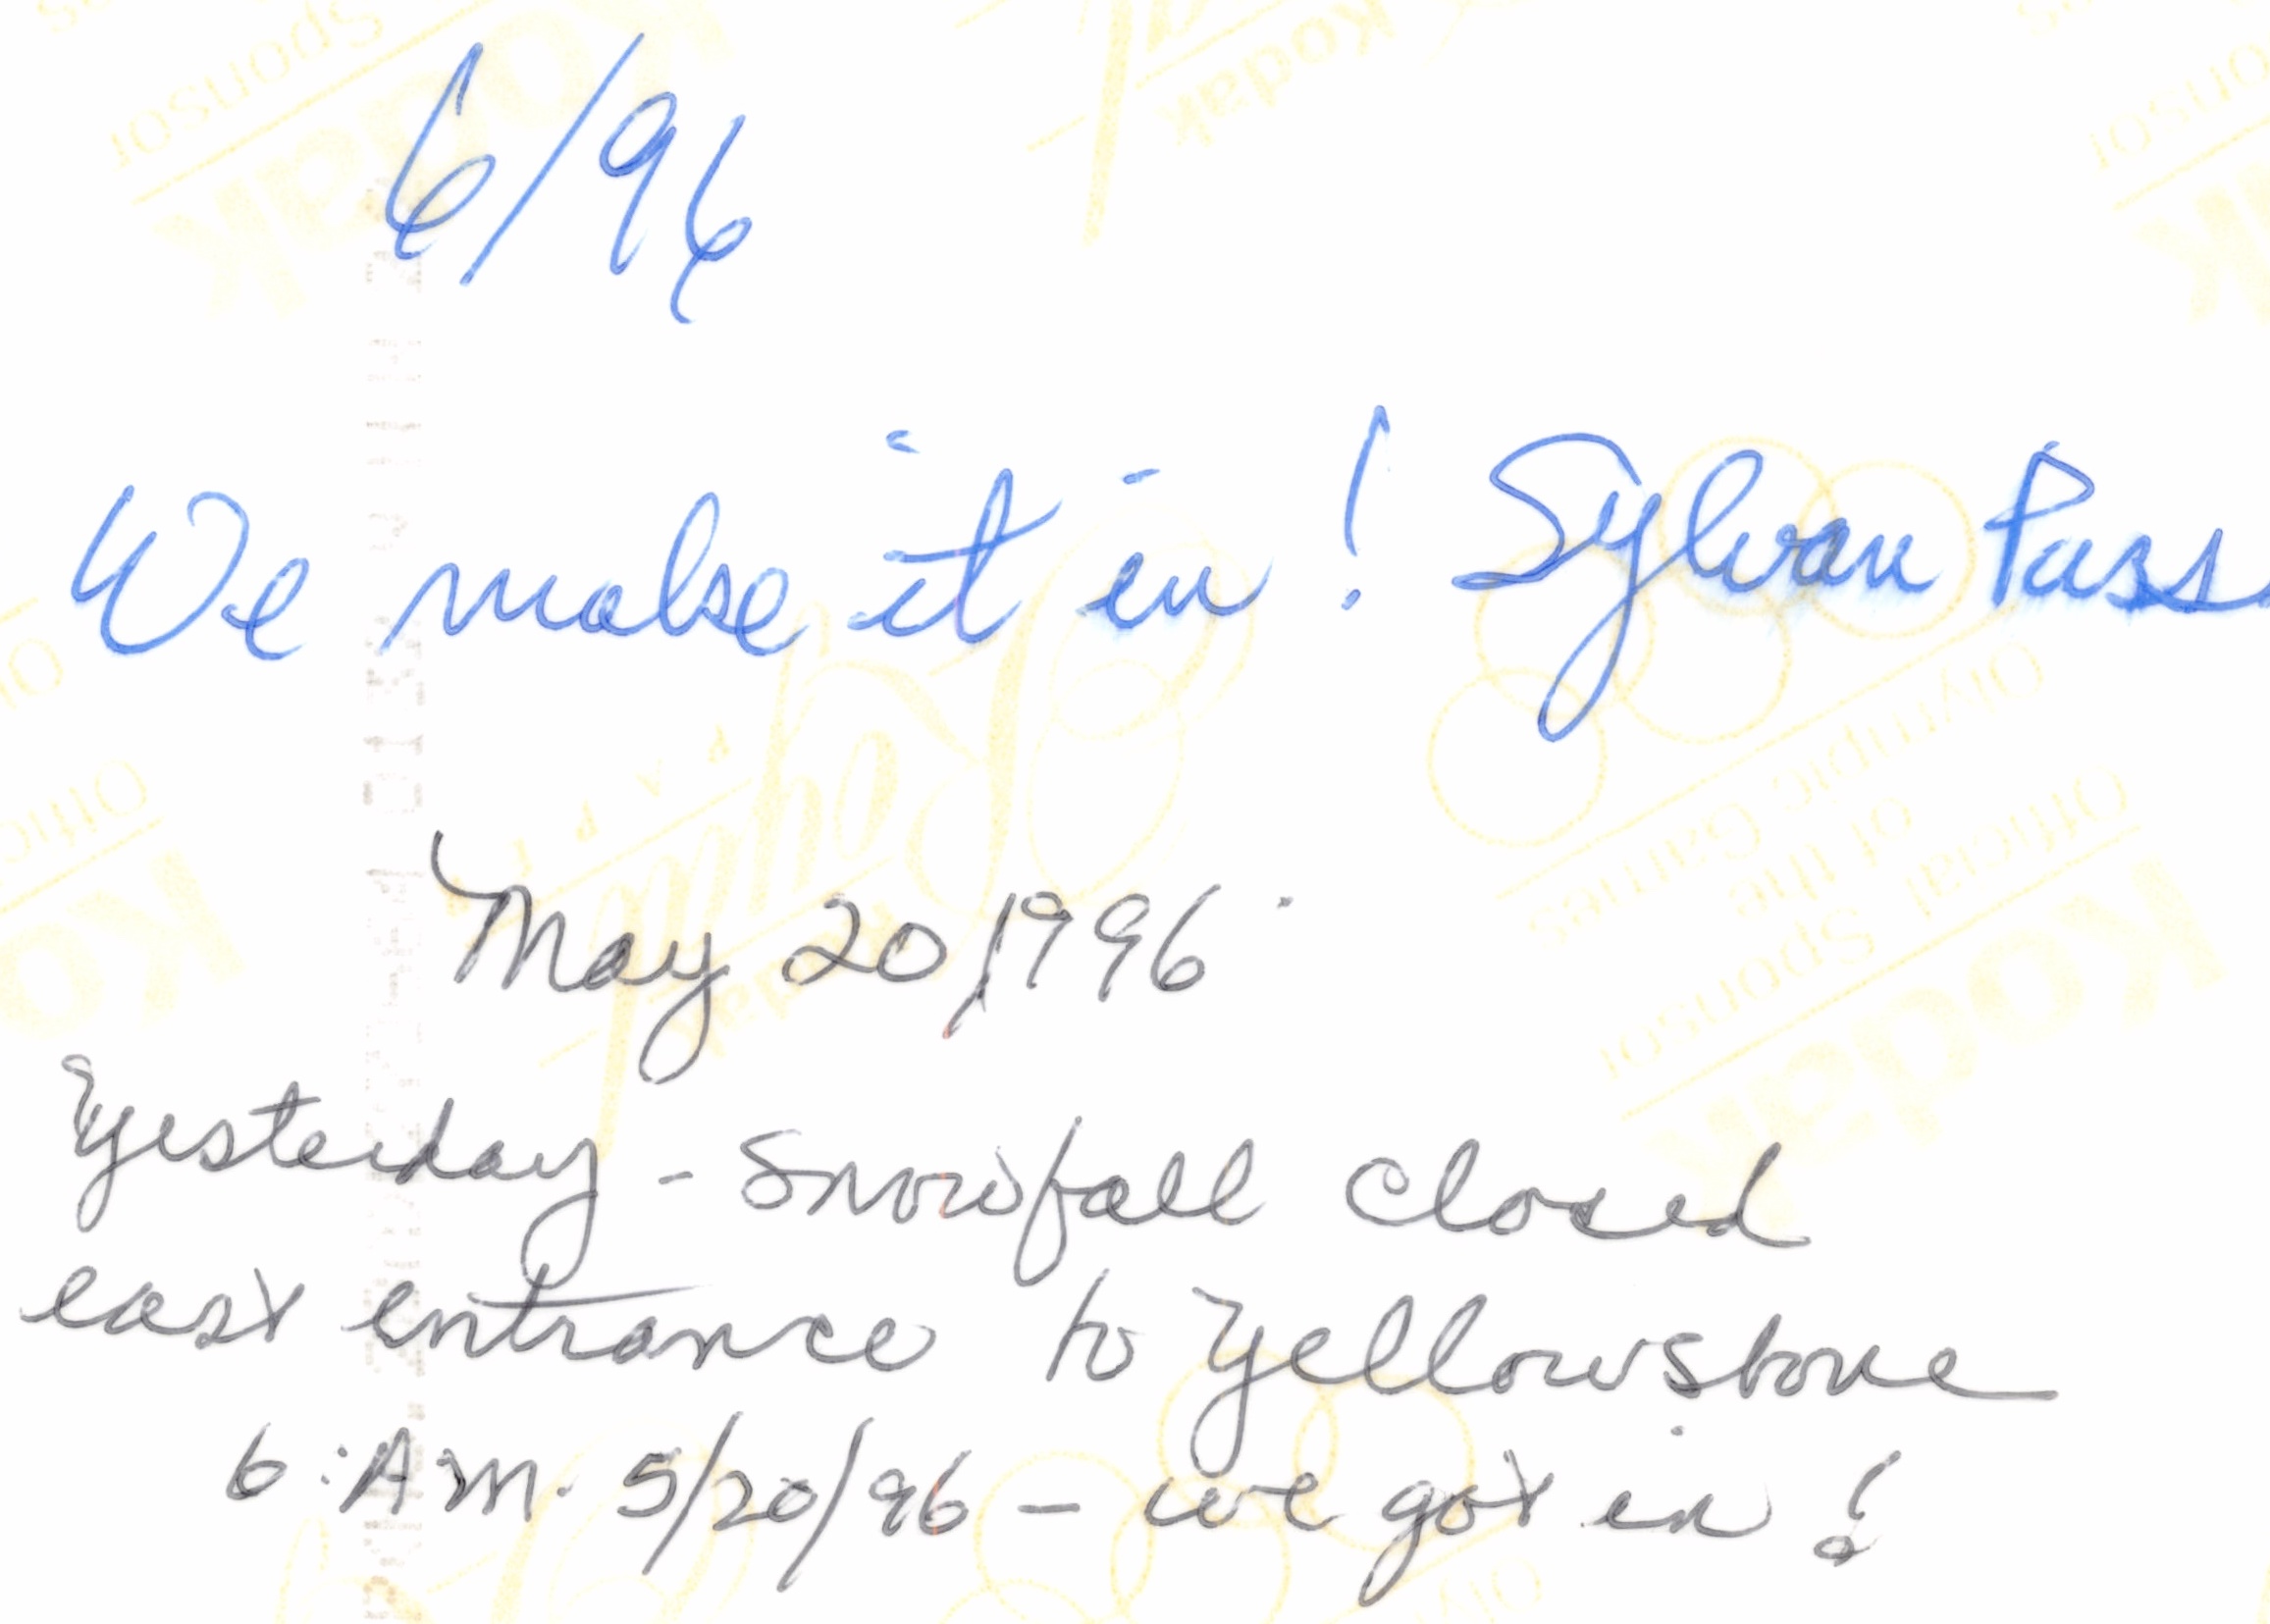 6/96
We make it in! Sylvan Pass
May 20, 1996
Yesterday - Snowfall closed
east entrance to Yellowstone
6:A.M. 5/20/96 - we got in!
Kodak
Official Sponsor
of the
Olympic Games
Kodak
Royal
PAPER